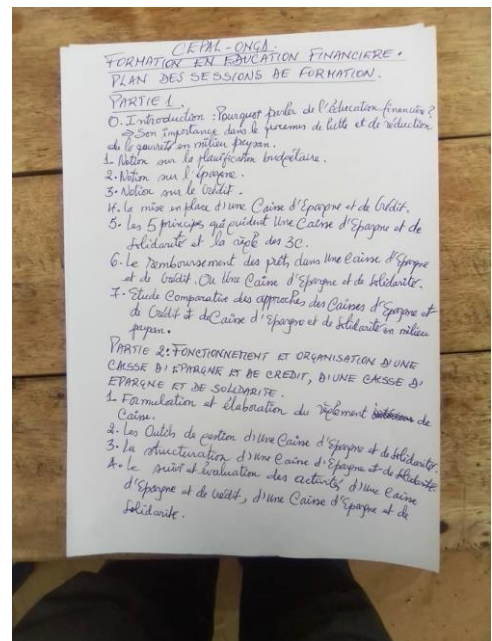 CEPAL-ONGD.
FORMATION EN EDUCATION FINANCIERE.
PLAN DES SESSIONS DE FORMATION.
PARTIE 1.
0. Introduction : Pourquoi parler de l'éducation financière ?
⇒ Son importance dans le processus de lutte et de réduction
de la pauvreté en milieu paysan.
1. Notion sur la planification budgétaire.
2. Notion sur l'épargne.
3. Notion sur le Crédit.
4. La mise en place d'une Caisse d'Epargne et de Crédit.
5. Les 5 principes qui guident Une Caisse d'Epargne et de
Solidarité et la règle des 3C.
6. Le remboursement des prêts dans Une Caisse d'Epargne
et de Crédit. Ou Une Caisse d'Epargne et de Solidarité.
7. Etude Comparative des approches des Caisses d'Epargne et
de Crédit et de Caisse d'Epargne et de Solidarité en milieu
paysan.
PARTIE 2: FONCTIONNEMENT ET ORGANISATION D'UNE
CAISSE D'EPARGNE ET DE CREDIT, D'UNE CAISSE D'
EPARGNE ET DE SOLIDARITE.
1. Formulation et élaboration du règlement de
Caisse.
2. Les Outils de gestion d'Une Caisse d'Epargne et de Solidarité.
3. La structuration d'Une Caisse d'Epargne et de Solidarité.
4. Le suivi et évaluation des activités d'Une Caisse
d'Epargne et de Crédit, d'Une Caisse d'Epargne et de
Solidarité.